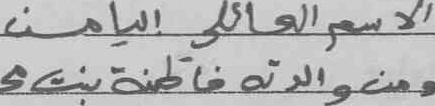 الاسم العائلي اليامن
ومن والدته فاطمة بنت